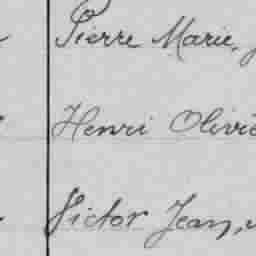 Pierre Marie,
Henri Olivie
Victor Jean,